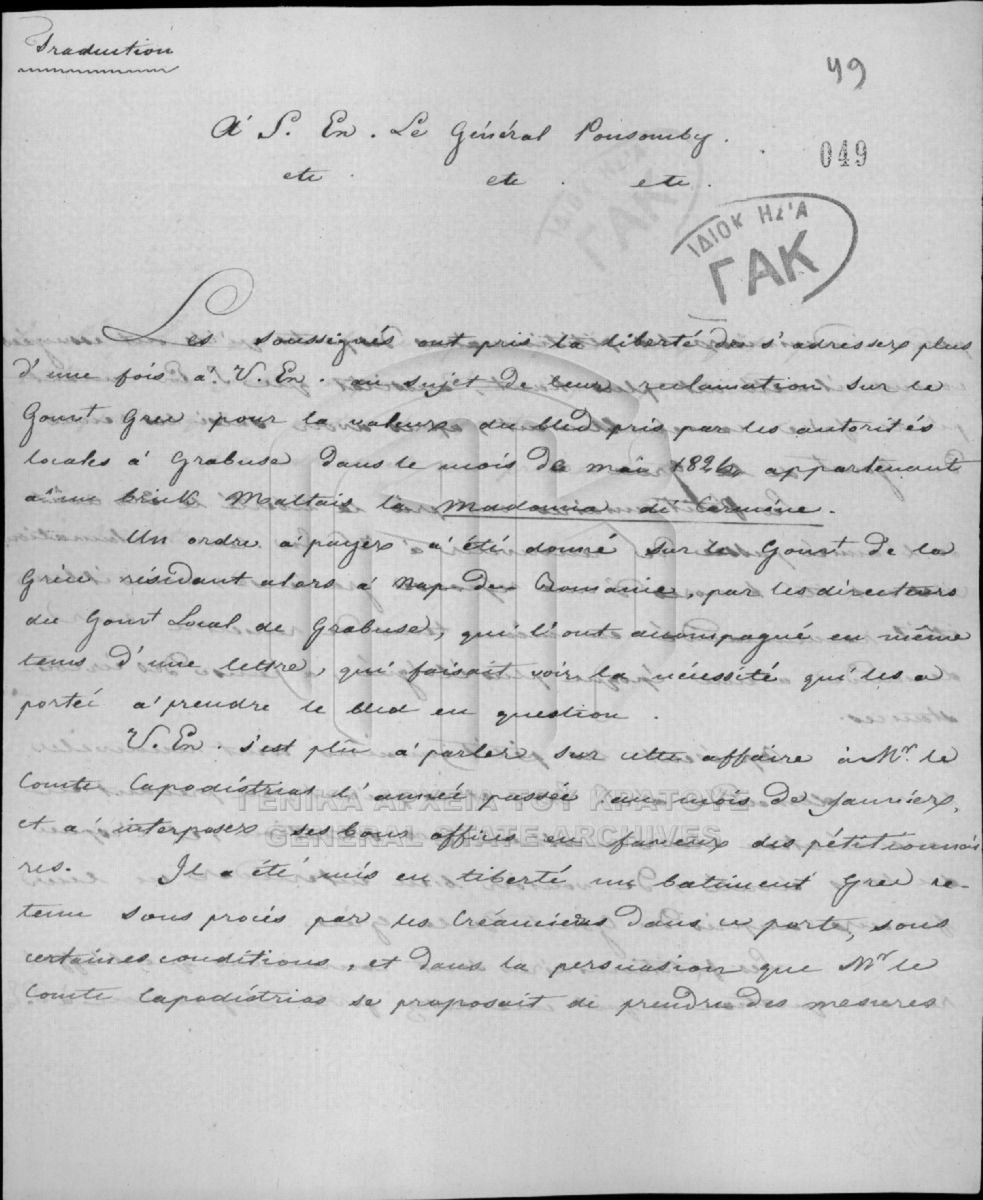 Traduction
49
A' S. En. Le Général Ponsomby.
049
etc. etc. etc.
ΙΔΙΟΚ ΗΣ'Α
ΓΑΚ
Les soussignés ont pris la liberté de s'adresser plus
d'une fois a' V. En. au sujet de leur reclamation sur le
Gouvt Grec pour la valeur du bled pris par les autorités
locales à Grabuse dans le mois de mai 1826, appartenant
a' un brick Maltais la Madonna di Carmine.
Un ordre a' payer a' été donné sur le Gouvt de la
Grèce résidant alors à Nap. de Romanie, par les directeurs
du Gouvt Local de Grabuse, qui l'ont accompagné en même
tems d'une lettre, qui faisait voir la nécessité qui les a
porté a' prendre le bled en question.
V. En. s'est plu a' parler sur cette affaire à Mr. le
Comte Capodistrias l'année passée au mois de Janvier,
et a' interposer ses bons offices en faveur des pétitionnai
res. Il a été mis en liberté un batiment Grec re-
tenu sous procés par les Créanciers dans ce porte, sous
certaines conditions, et dans la persuasion que Mr le
Comte Capodistrias se proposait de prendre des mesures
ΓΕΝΙΚΑ ΑΡΧΕΙΑ ΤΟΥ ΚΡΑΤΟΥΣ
GENERAL STATE ARCHIVES